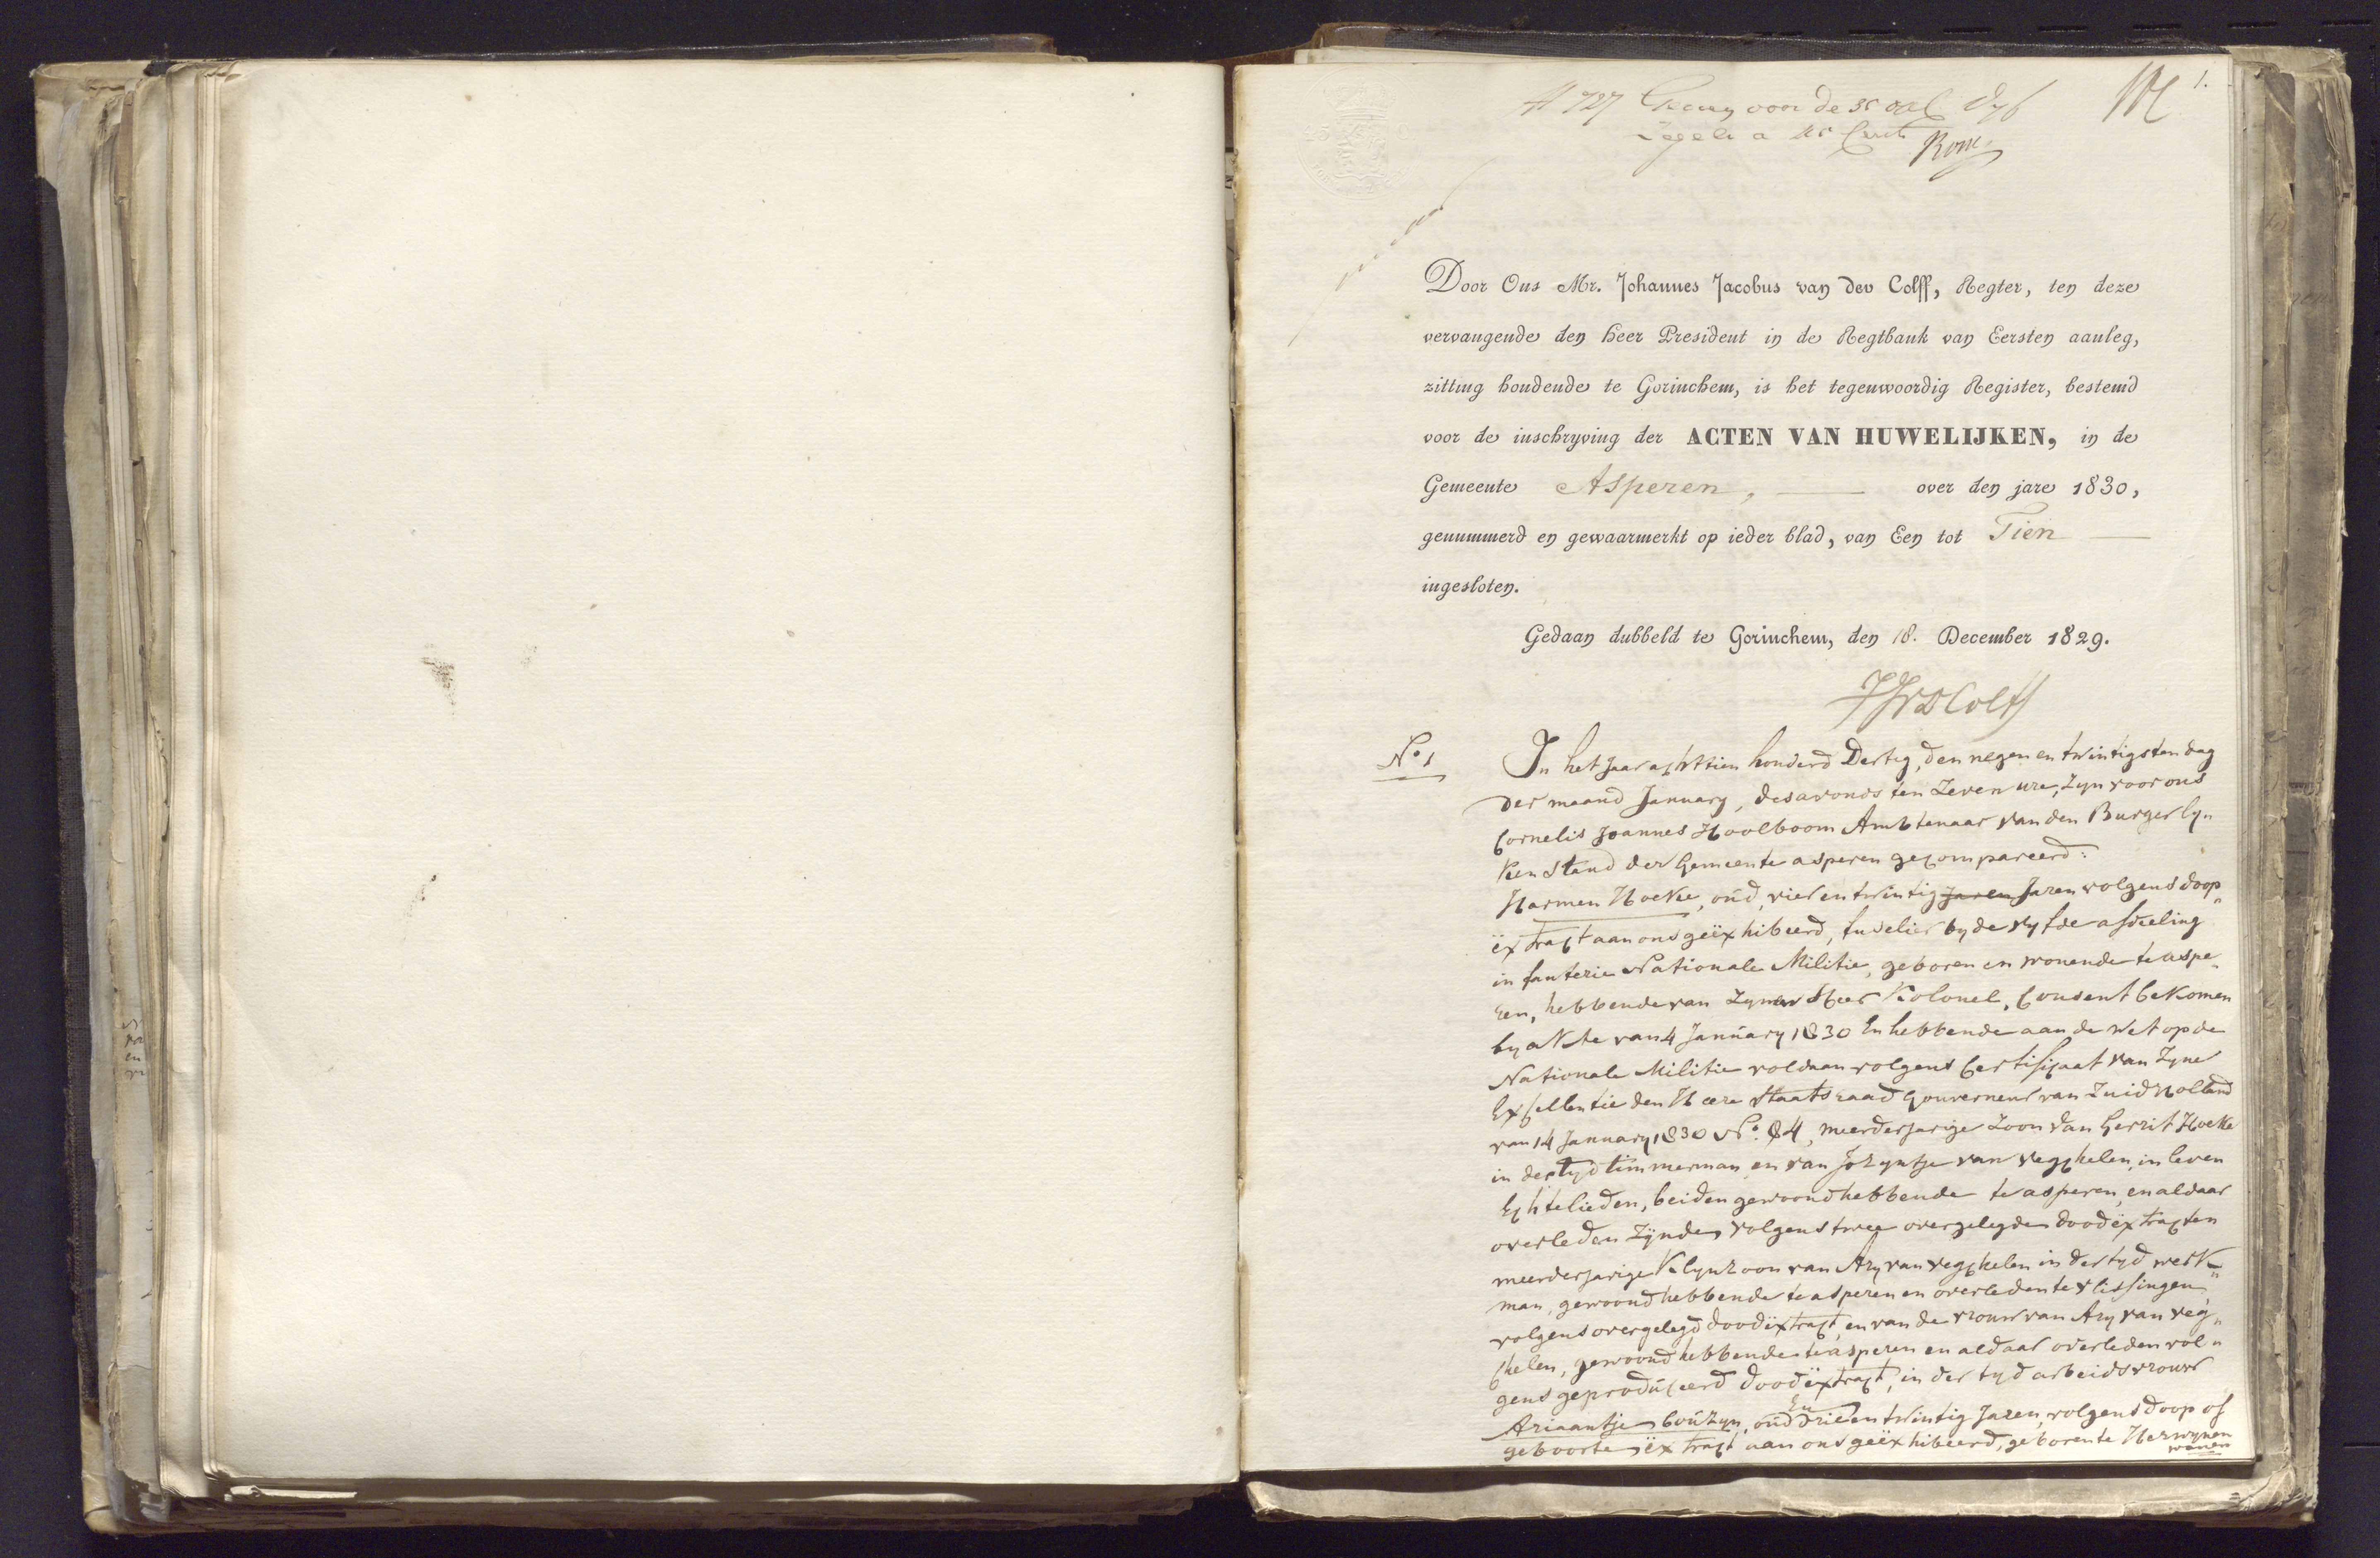 1.
Door Ons Mr. Johannes Jacobus van der Colff, Regter, ten deze
vervangende den Heer President in de Regtbank van Eersten aanleg,
zitting houdende te Gorinchem, is het tegenwoordig Register, bestemd
voor de inschryving der ACTEN VAN HUWELIJKEN, in de
Gemeente Asperen, over den jare 1830,
genummerd en gewaarmerkt op ieder blad, van Een tot Tien
ingesloten.
Gedaan dubbeld te Gorinchem, den 18. December 1829.
JJvdColff
No. 1
In het Jaar achttien honderd Dertig, den negen en twintigsten dag
der maand January, des avonds ten Zeven ure, Zyn voor ons
Cornelis Joannes Hoolboom Ambtenaar van den Burgerly„
ken Stand der Gemeente asperen gecompareerd:
Harmen Hoeke, oud, vier en twintig Jaren Jaren volgens doop„
ëxtract aan ons geëxhibeerd, fuselier by de vyfde afdeeling
infanterie Nationale Militie, geboren en wonende te aspe„
ren, hebbende van Zynen Heer Kolonel, Consent bekomen
by akte van 4 January 1830 En hebbende aan de Wet op de
Nationale Militie voldaan volgens Certificaat van Zyne
Excellentie den Heere Staatsraad Gouverneur van Zuid Holland
van 14 January 1830 No. 84, meerderjarige Zoon van Gerrit Hoeke
in der tyd timmerman, en van Jozyntje van Vegchelen, in leven
Echtelieden, beiden gewoond hebbende te asperen, en aldaar
overleden Zÿnde, volgens twee overgelegde doodëxtracten
meerderjarige Klynzoon van Ary van Vegchelen in der tyd werk„
man, gewoond hebbende te asperen en overleden te Vlissingen,
volgens overgelegd doodëxtract, en van de vrouw van Ary van Veg„
chelen, gewoond hebbende te asperen en aldaar overleden vol„
gens geproduceerd doodëxtract, in der tyd arbeidsvrouw
En
Ariaantje bouzyn, oud drie en twintig Jaren, volgens doop of
geboorte ëxtract aan ons geëxhibeerd, geboren te Herwynen
wonen